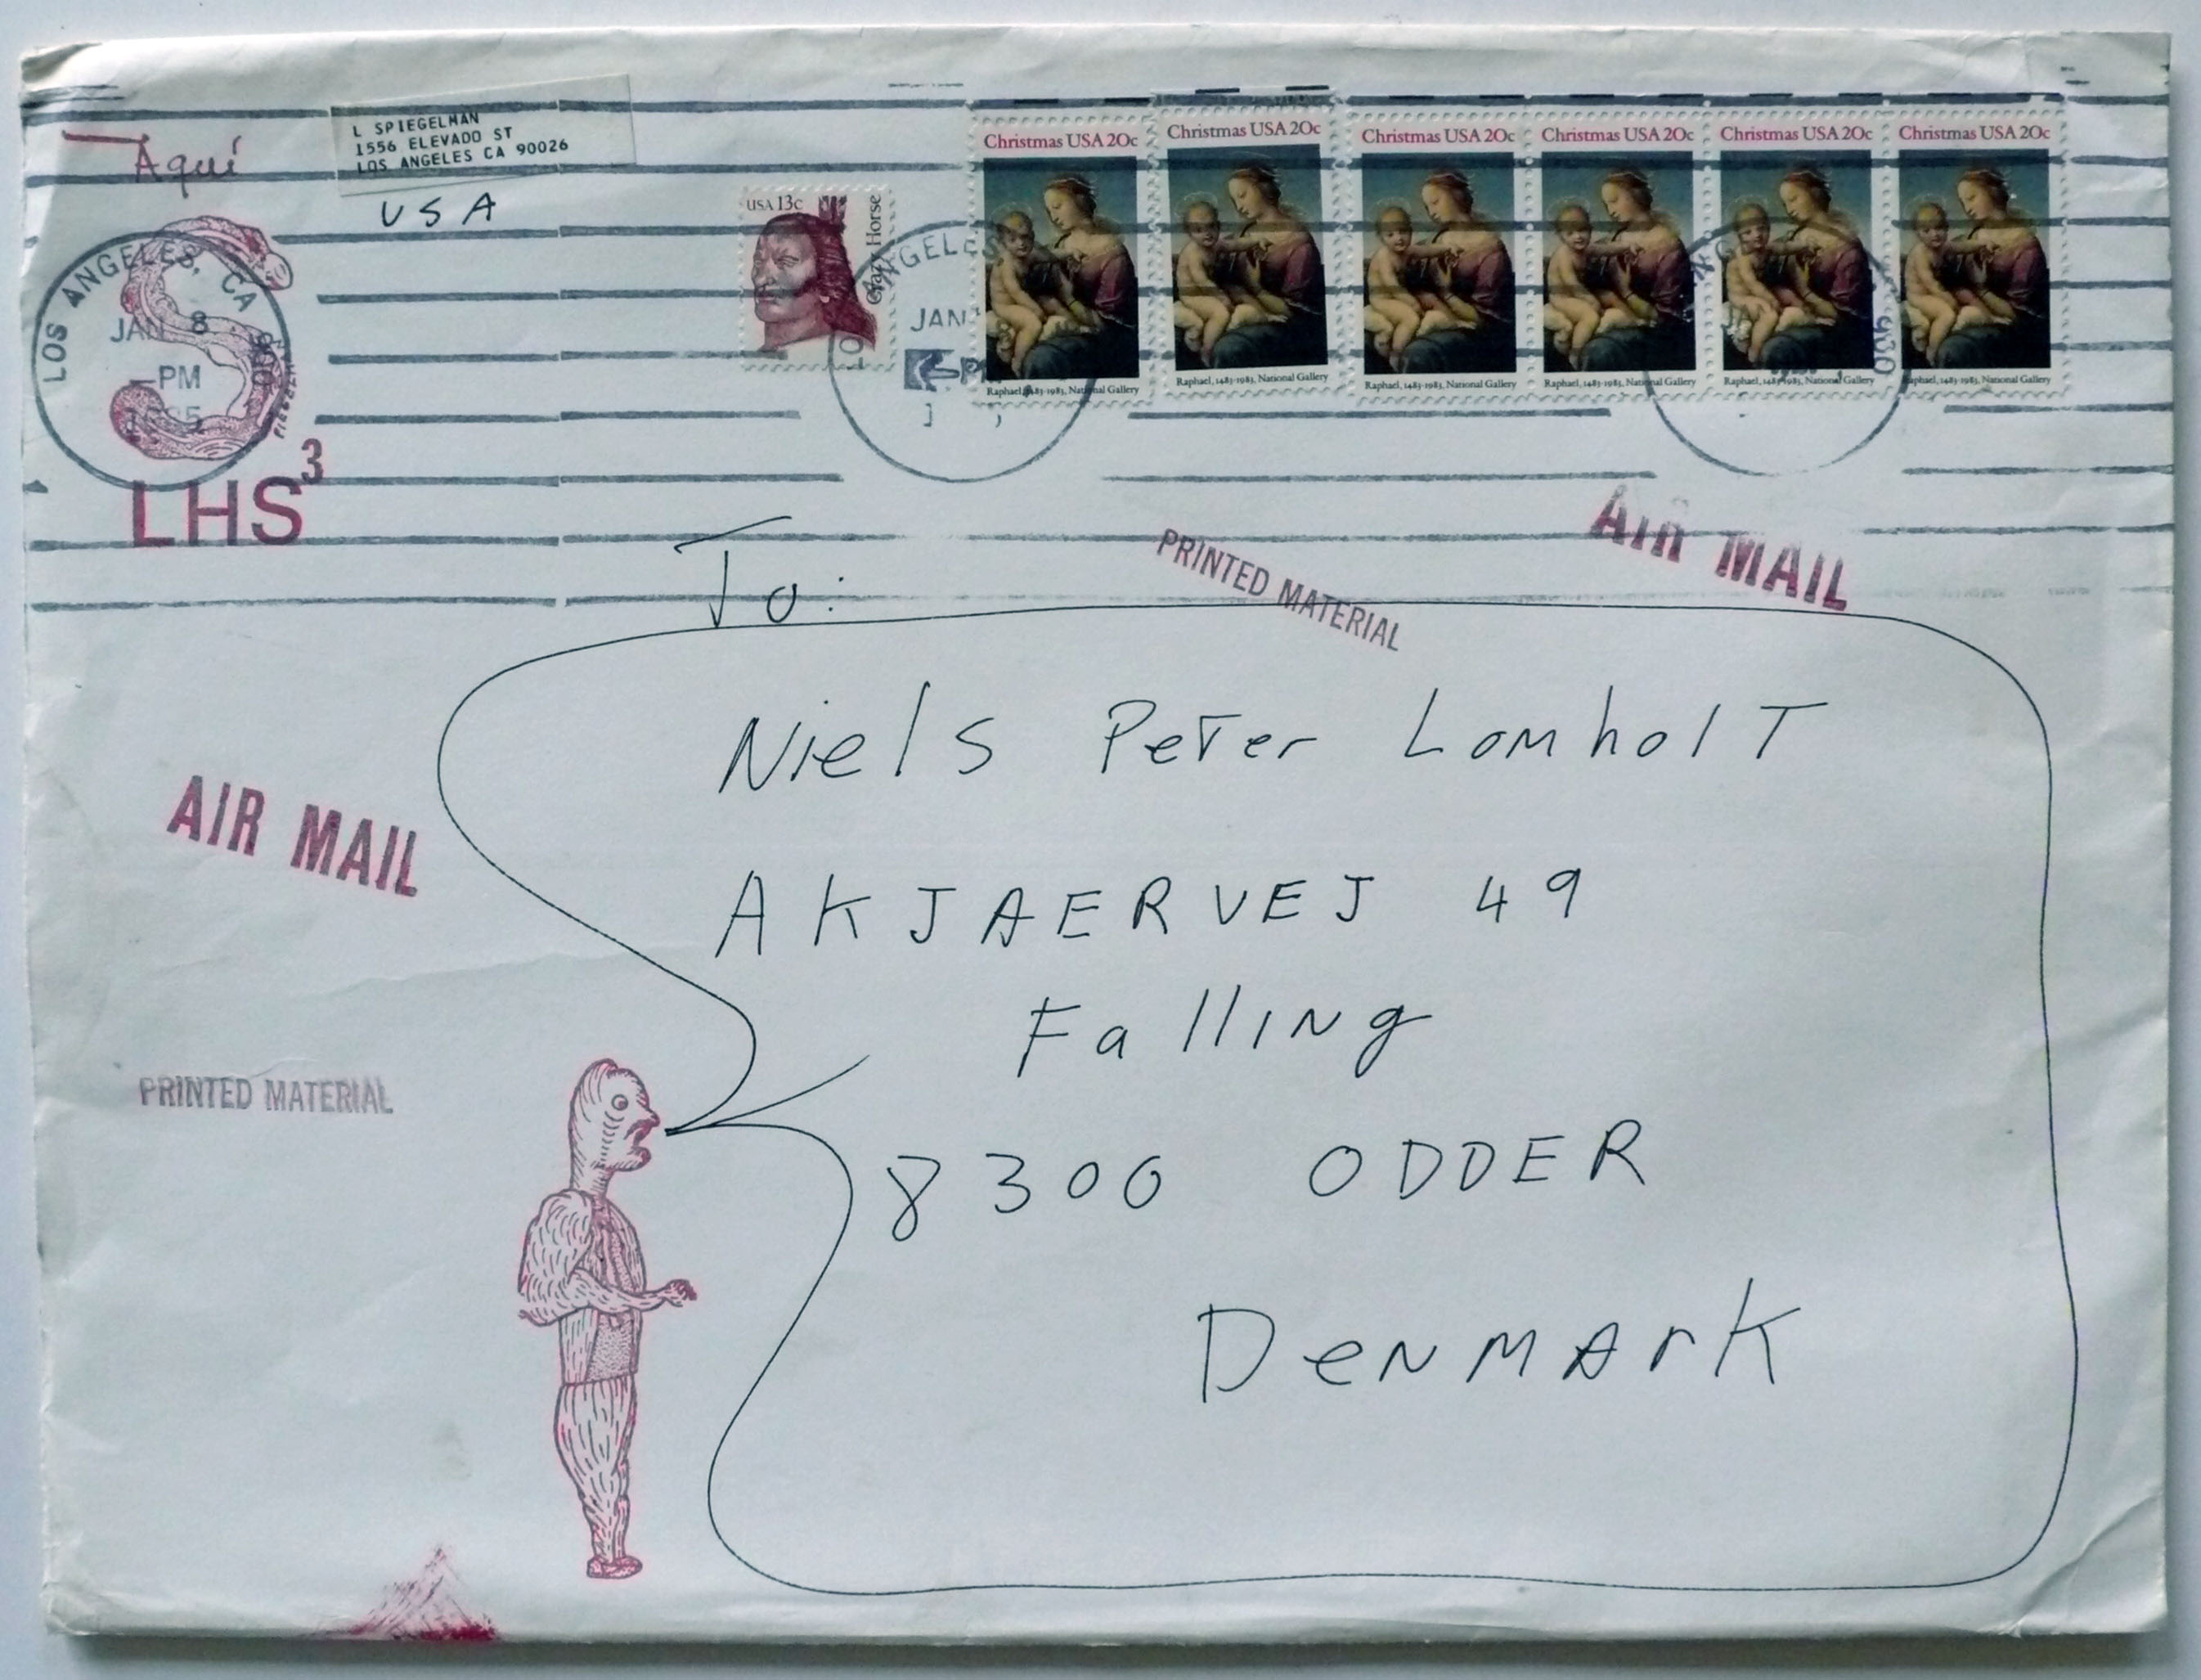 Aquí
L SPIEGELMAN
1556 ELEVADO ST
LOS ANGELES CA 90026
USA
LOS ANGELES, CA
JAN 8
PM
1985
LHS3
USA 13c
Crazy Horse
ANGELES
JAN
Christmas USA 20c
Raphael, 1483-1983, National Gallery
Christmas USA 20c
Raphael, 1483-1983, National Gallery
Christmas USA 20c
Raphael, 1483-1983, National Gallery
Christmas USA 20c
Raphael, 1483-1983, National Gallery
Christmas USA 20c
Raphael, 1483-1983, National Gallery
Christmas USA 20c
Raphael, 1483-1983, National Gallery
AIR MAIL
PRINTED MATERIAL
To:
Niels Peter Lomholt
AKJAERVEJ 49
Falling
8300 ODDER
Denmark
AIR MAIL
PRINTED MATERIAL